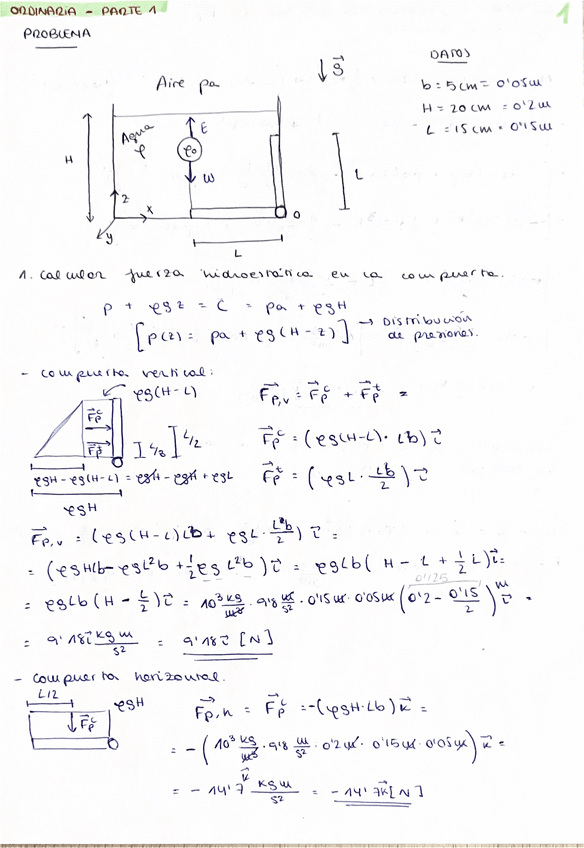 ORDINARIA - PARTE 1
1
PROBLEMA
DATOS
b = 5 cm = 0'05 m
H = 20 cm = 0'2 m
L = 15 cm = 0'15 m
g⃗
Aire pa
Agua
ρ
E
ρ₀
W
H
L
z
x
y
O
L
1. Calcular fuerza hidrostática en la compuerta.
P + ρgz = C = pa + ρgH
[p(z) = pa + ρg(H-z)] → Distribución de presiones.
- Compuerta vertical:
ρg(H-L)
F⃗p,v = F⃗pᶜ + F⃗pᵗ =
F⃗pᶜ
F⃗pᵗ
L/3
L/2
F⃗pᶜ = (ρg(H-L) · Lb) i⃗
ρgH - ρg(H-L) = ρgH - ρgH + ρgL
F⃗pᵗ = (ρgL · Lb/2) i⃗
ρgH
F⃗p,v = (ρg(H-L)Lb + ρgL · L²b/2) i⃗ =
= (ρgHLb - ρgL²b + 1/2 ρg L²b) i⃗ = ρgLb(H - L + 1/2 L) i⃗ =
0'125
= ρgLb(H - L/2) i⃗ = 10³ kg/m³ · 9'8 m/s² · 0'15 m · 0'05 m (0'2 - 0'15/2) m i⃗ =
= 9'18 i⃗ kg m/s² = 9'18 i⃗ [N]
- Compuerta horizontal.
L/2
ρgH
F⃗pᶜ
F⃗p,h = F⃗pᶜ = -(ρgH·Lb) k⃗ =
= -(10³ kg/m³ · 9'8 m/s² · 0'2 m · 0'15 m · 0'05 m) k⃗ =
= - 14'7 k⃗ kg m/s² = - 14'7 k⃗ [N]